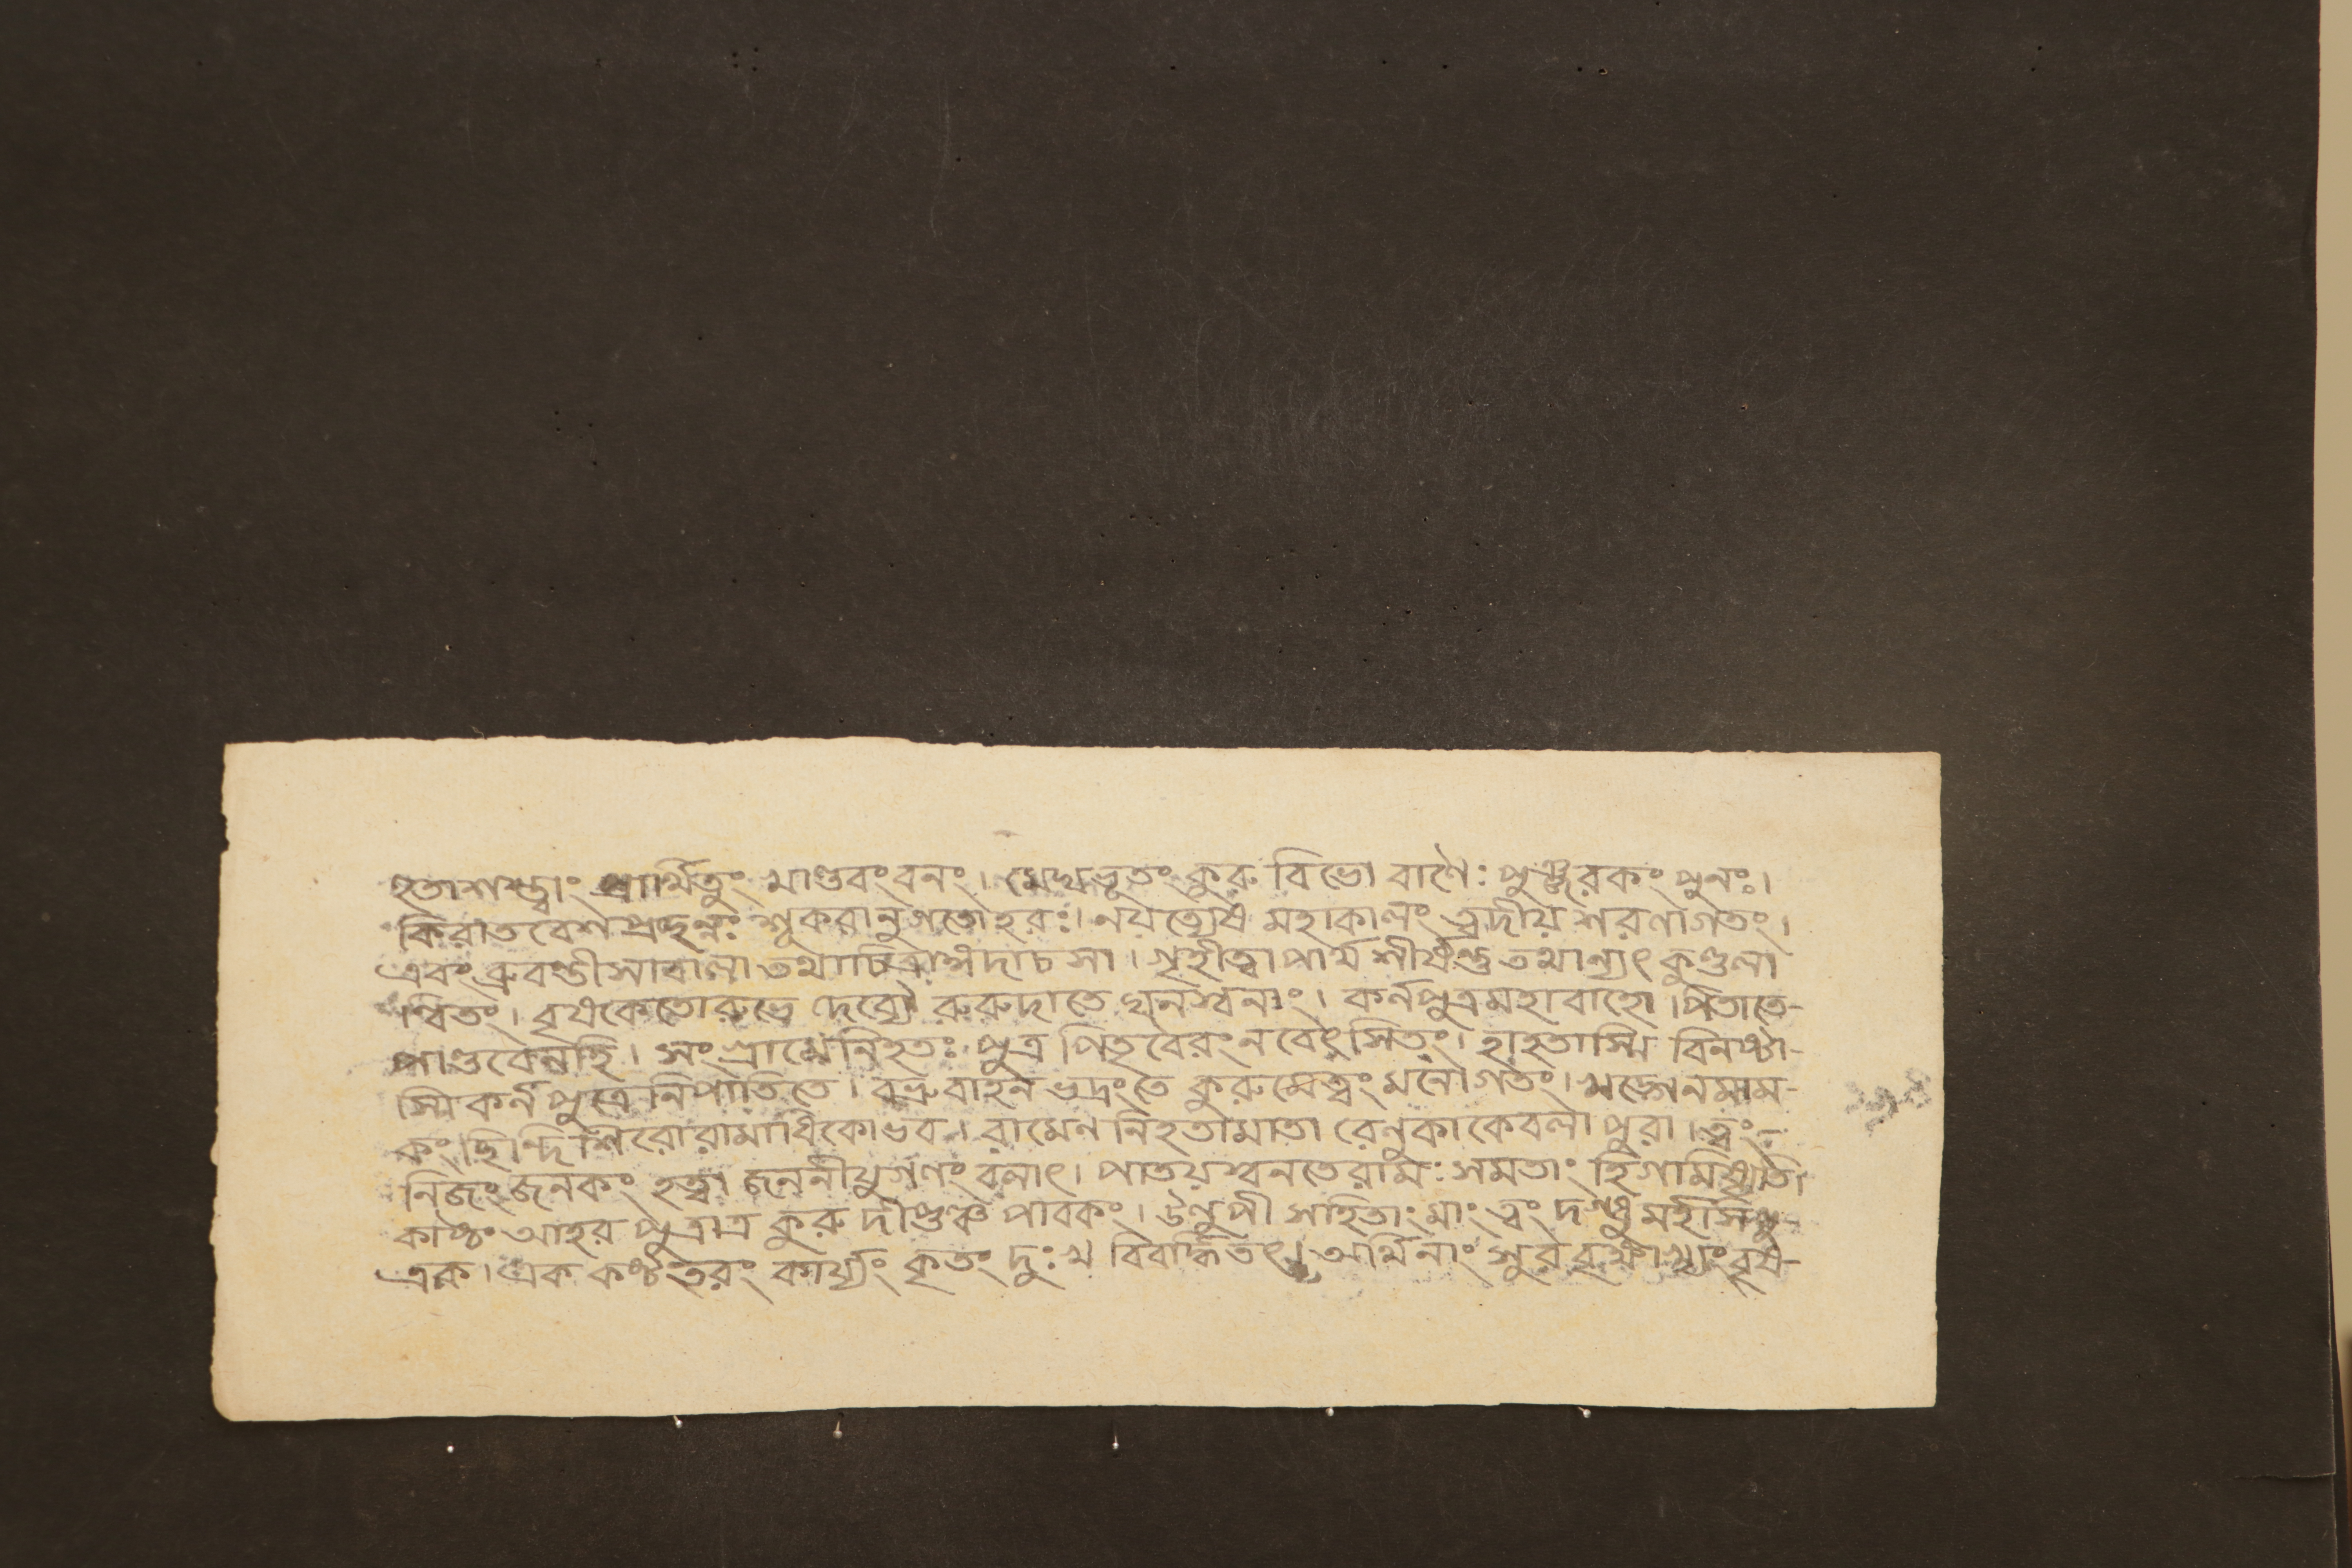 হুতাশস্ত্বাং প্রার্থিতুং খাণ্ডবং বনং। মেধ্যভূতং কুরু বিভো বাণৈঃ পুঞ্জরকং পুনঃ।
কিরাতবেশ প্রছন্নঃ শূকরানুগতো হরঃ। নয়ত্যেষ মহাকালং ত্বদীয় শরণাগতং।
এবং ব্রুবন্তী সা বালা তথা চিত্রাঙ্গদা চ সা। গৃহীত্বা পার্থ শীর্ষন্তু তথান্যৎ কুণ্ডলা
ন্বিতং। বৃষকেতোরুভে দেব্যৌ রুরুদাতে ঘনস্বনাং। কর্নপুত্র মহাবাহো। পিতা তে-
পাণ্ডবেন হি। সংগ্রামে নিহতঃ পুত্র পিতৃবৈরং ন বেৎসিতং। হা হতাস্মি বিনষ্টা-
স্মি কর্নপুত্রে নিপাতিতে। বভ্রুবাহন ভদ্রং তে কুরু মে ত্বং মনোগতং। খড্গেন মাম-
কং ছিন্দি শিরো রামাধিকো ভব। রামেন নিহতা মাতা রেনুকা কেবলা পুরা। ত্বং-
নিজং জনকং হত্বা জননীযুগণং বলাৎ। পাতয়স্ব ন তে রামঃ সমতাং হি গামিষ্যতি
কাষ্ঠং আহর পুত্রাত্র কুরু দীপ্তঞ্চ পাবকং। উলুপী সহিতাং মাং ত্বং দগ্ধুমর্হসি পু-
ত্রক। এক কষ্টতরং কার্য্যং কৃতং দুঃখ বিবর্দ্ধিতং। অর্থিনাং সুরবৃক্ষাখ্যং বৃষ-